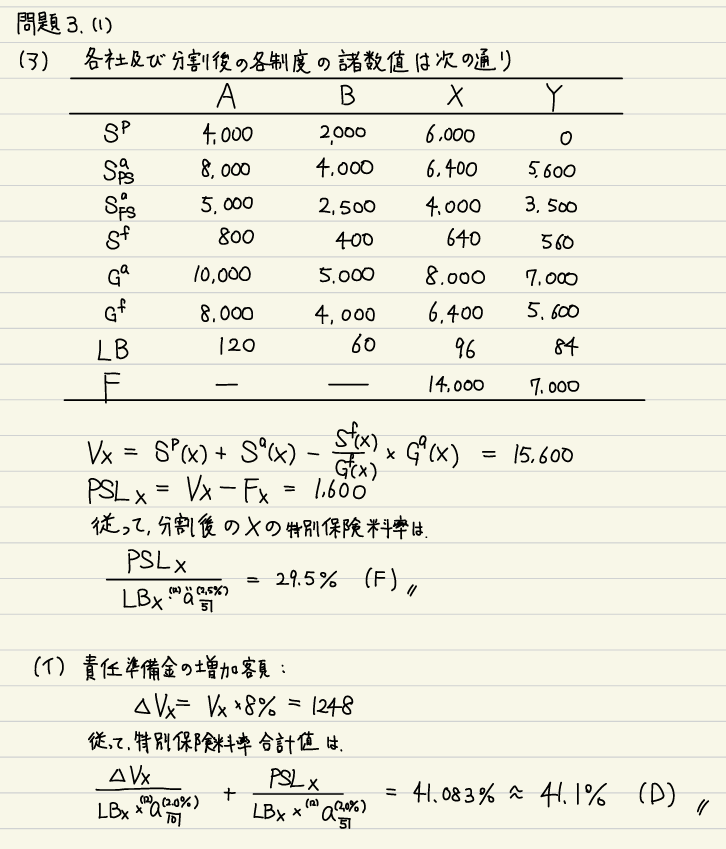 問題3.(1)
(ア) 各社及び分割後の各制度の諸数値は次の通り
A B X Y
S^p 4,000 2,000 6,000 0
S^a_PS 8,000 4,000 6,400 5,600
S^a_FS 5,000 2,500 4,000 3,500
S^f 800 400 640 560
G^a 10,000 5,000 8,000 7,000
G^f 8,000 4,000 6,400 5,600
LB 120 60 96 84
F — — 14,000 7,000
V_X = S^p(X) + S^a(X) − S^f(X)/G^f(X) × G^a(X) = 15,600
PSL_X = V_X − F_X = 1,600
従って、分割後のXの特別保険料率は、
PSL_X / LB_X・^(12)ä^(2.5%)_5| = 29.5% (F) 〃
(イ) 責任準備金の増加額:
ΔV_X = V_X × 8% = 1248
従って、特別保険料率合計値は、
ΔV_X / LB_X × ^(12)a^(2.0%)_10| + PSL_X / LB_X × ^(12)a^(2.0%)_5| = 41.083% ≈ 41.1% (D) 〃